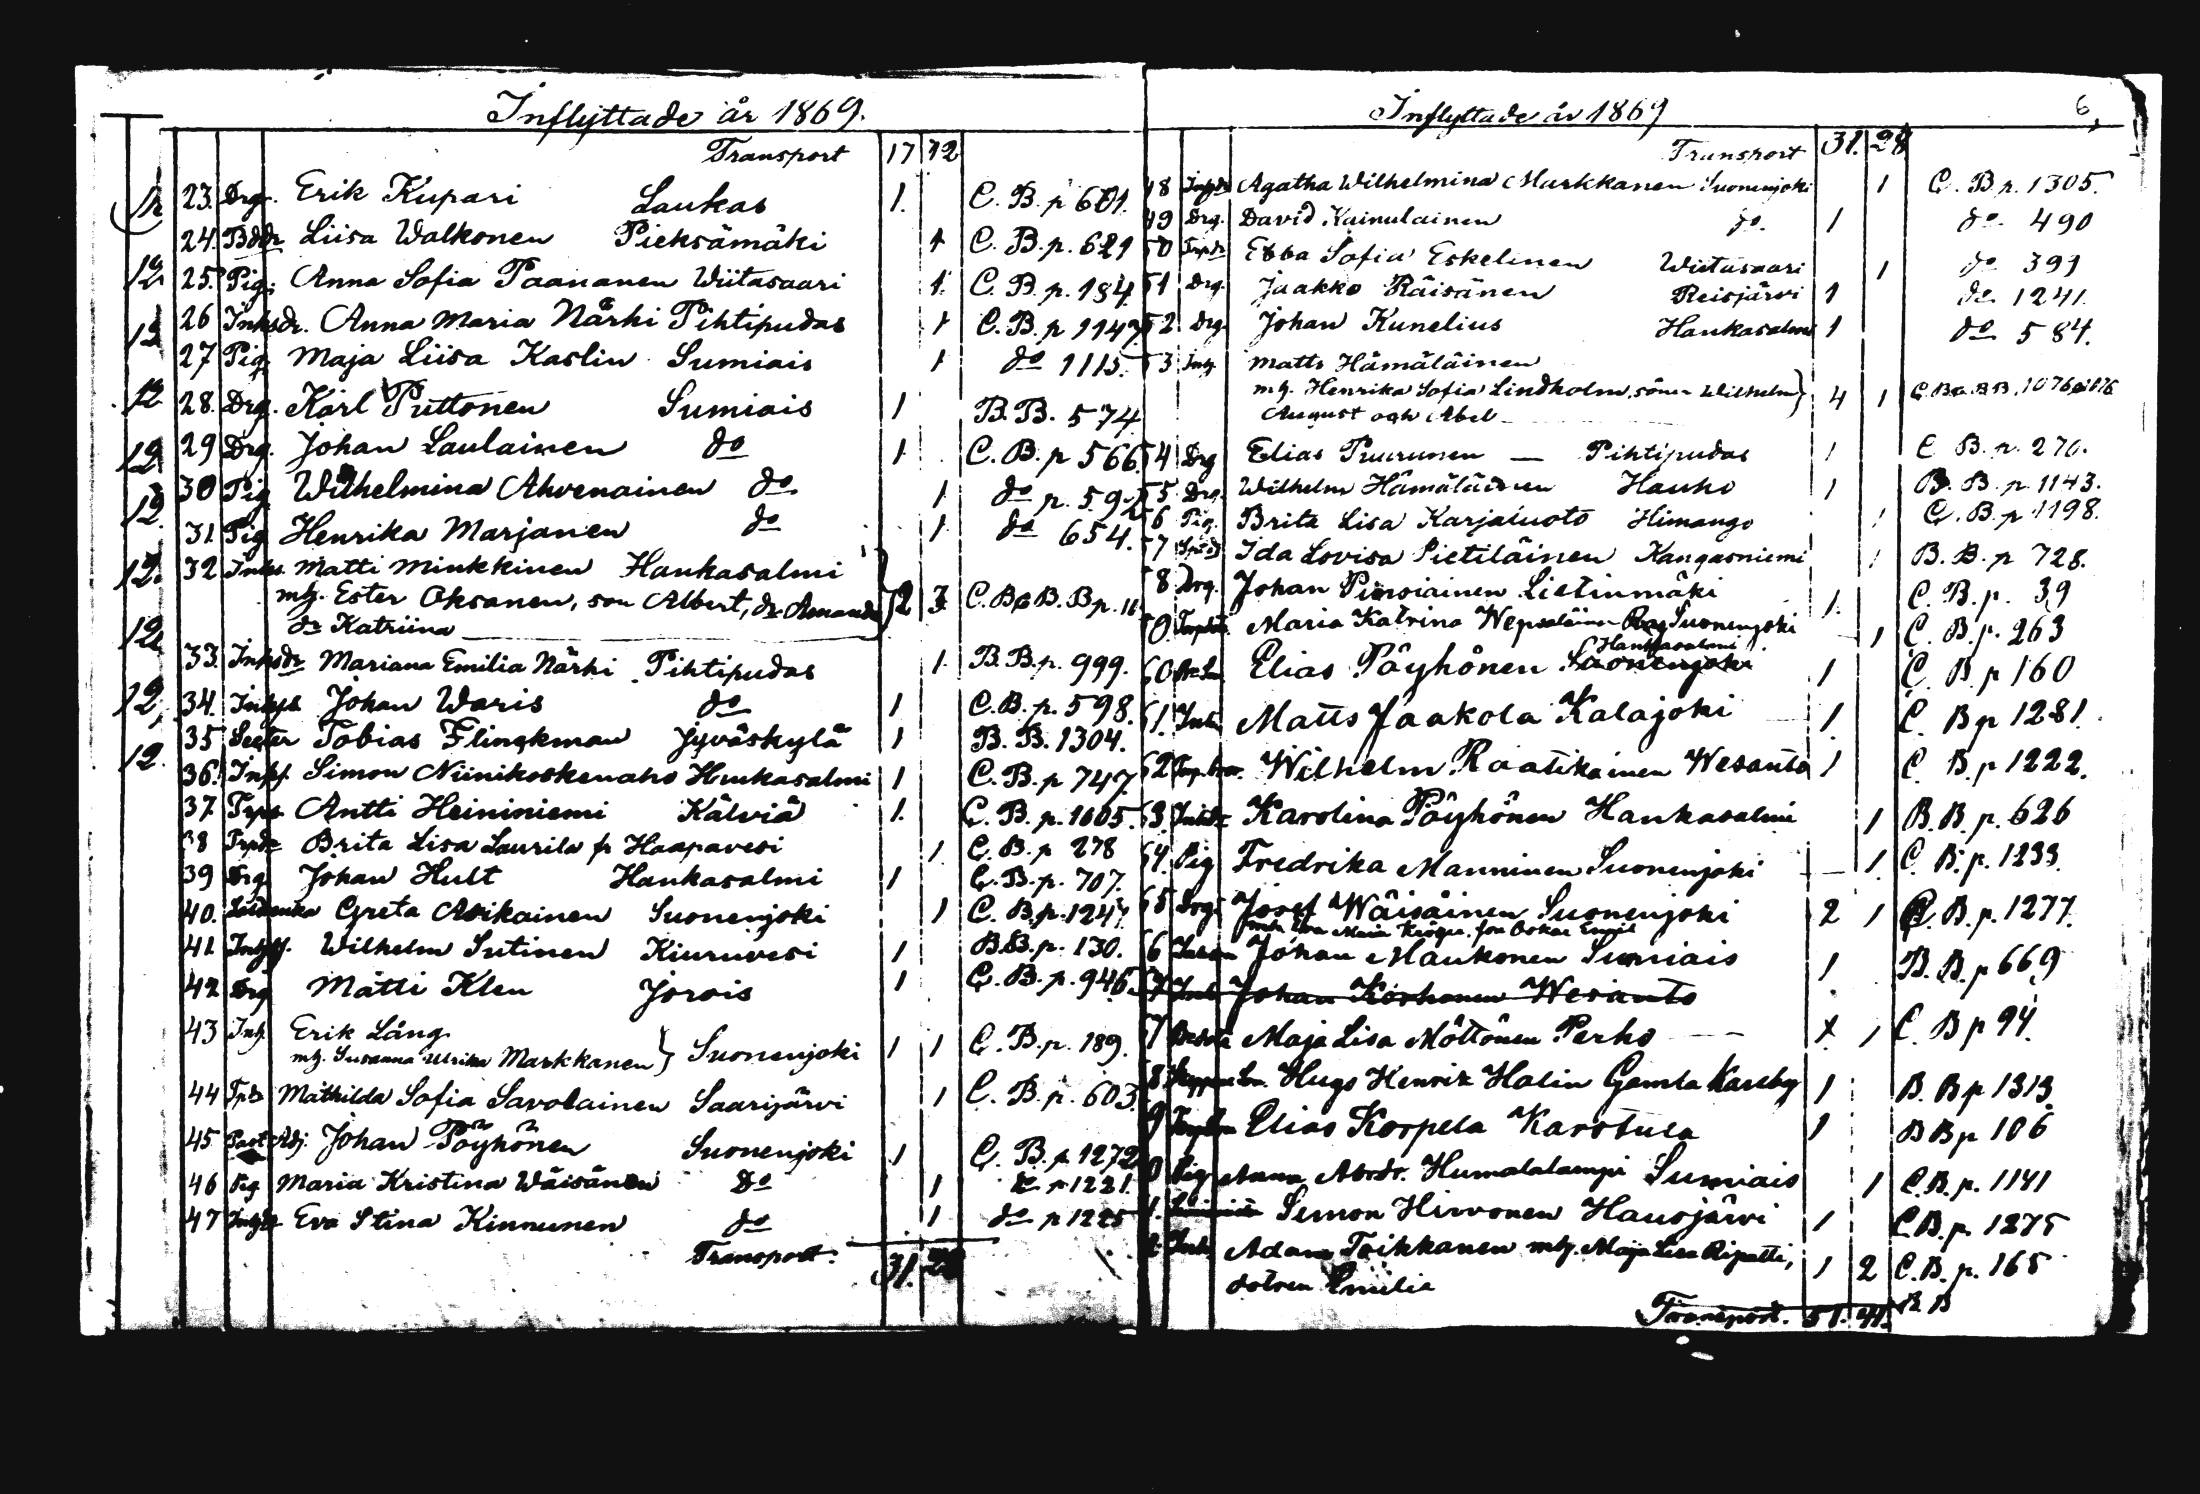 Inflyttade år 1869.
Transport 17 12
12 23. Drg. Erik Kupari Laukas 1. C. B. p 601.
24. Liisa Walkonen Pieksämäki 1 C. B. p. 621
12 25. Pig. Anna Sofia Paananen Wiitasaari 1. C. B. p. 184
12 26 Inhsdr. Anna Maria Närhi Pihtipudas 1 C. B. p 1147
27 Pig. Maja Liisa Kaslin Sumiais 1 do 1115.
12 28. Drg. Karl Puttonen Sumiais 1 B. B. 574
12 29 Drg. Johan Laulainen do 1 C. B. p 566
12 30 Pig Wilhelmina Ahvenainen do 1 do p. 592
31. Pig Henrika Marjanen do 1. do 654.
12. 32 Inhs Matti Minkkinen Hankasalmi
mh. Ester Oksanen, son Albert, dr Amanda 2 3 C. B & B. B p. 11
12 dr Katriina
33. Inhsdr Mariana Emilia Närhi Pihtipudas 1. B. B. p. 999.
12 34. Johan Waris do 1 C. B. p. 598.
35 Tobias Flingkman Jyväskylä 1 B. B. 1304.
12. 36. Simon Niinikoskenaho Hankasalmi 1 C. B. p 747.
37. Antti Heininiemi Kälviä 1. C. B. p. 1005.
38 Brita Lisa Laurila fr Haapavesi 1 C. B. p 278
39 Drg Johan Hult Hankasalmi 1 C. B. p. 707.
40. Greta Asikainen Suonenjoki 1 C. B. p. 1247.
41. Wilhelm Sutinen Kiuruvesi 1 B. B. p. 130.
42 Drg Matti Klen Jorois 1 C. B. p. 946
43 Inh. Erik Lång
mh. Susanna Ulrika Markkanen } Suonenjoki 1 1 C. B. p. 189.
44 Mathilda Sofia Savolainen Saarijärvi 1 C. B. p. 603.
45 Past. Adj. Johan Pöyhönen Suonenjoki 1 C. B. p. 1272
46 Pig Maria Kristina Wäisänen Do 1 do p 1221.
47 Eva Stina Kinnunen do 1 do p 1225
Transport. 31. 28
Inflyttade år 1869 6,
Transport 31. 28
48 Agatha Wilhelmina Markkanen Suonenjoki 1 C. B. p. 1305.
49 Drg. David Kainulainen do. 1 do 490
50 Ebba Sofia Eskelinen Wiitasaari 1 do 399
51 Drg. Jaakko Räisänen Reisjärvi 1 do 1241.
52 Drg. Johan Kunelius Hankasalmi 1 do 584.
53 Inh. Matts Hämäläinen
mh. Henrika Sofia Lindholm, söner Wilhelm } 4 1 C. B. o. B. B. 1076
August och Abel
54 Drg Elias Puurunen — Pihtipudas 1 C B. p. 270.
55 Drg. Wilhelm Hämäläinen Hauho 1 B. B. p. 1143.
56 Pig. Brita Lisa Karjaluoto Himango 1 C. B. p 1198.
57 Ida Lovisa Pietiläinen Kangasniemi 1 B. B. p 728.
58 Drg. Johan Listinmäki 1. C. B. p. 39
Maria Katrina Suonenjoki 1 C. B. p. 263
Hankasalmi
60 Elias Pöyhönen Suonenjoki 1 C. B. p 160
61. Matts Jaakola Kalajoki 1 C. B p 1281.
62 Wilhelm Raatikainen Wesanto 1 C. B. p 1222.
63 Karolina Pöyhönen Hankasalmi 1 B. B. p. 626
64. Pig Fredrika Manninen Suonenjoki 1. C. B. p. 1233.
65 Drg Josef Wäisäinen Suonenjoki 2 1 C. B. p. 1277.
Maia son Oskar Emil
66 Johan Maukonen Sumiais 1 B. B. p 669
67 Inh Johan Korhonen Wesanto
67 Maja Lisa Möttönen Perho 1 C. B p 94.
68 Hugo Henrik Holin Gamla Karleby 1 B. B p 1313.
69 Elias Korpela Karstula 1 B B p 106
70 Pig Anna Humalalampi Sumiais 1 C. B. p. 1141
71. Simon Hirvonen Hausjärvi 1 C B. p. 1275
72 Adam Toikkanen mh. Maja Lisa Ripatti, 1 2 C. B. p. 165
dotren Emilia
Transport. 51. 41. B B